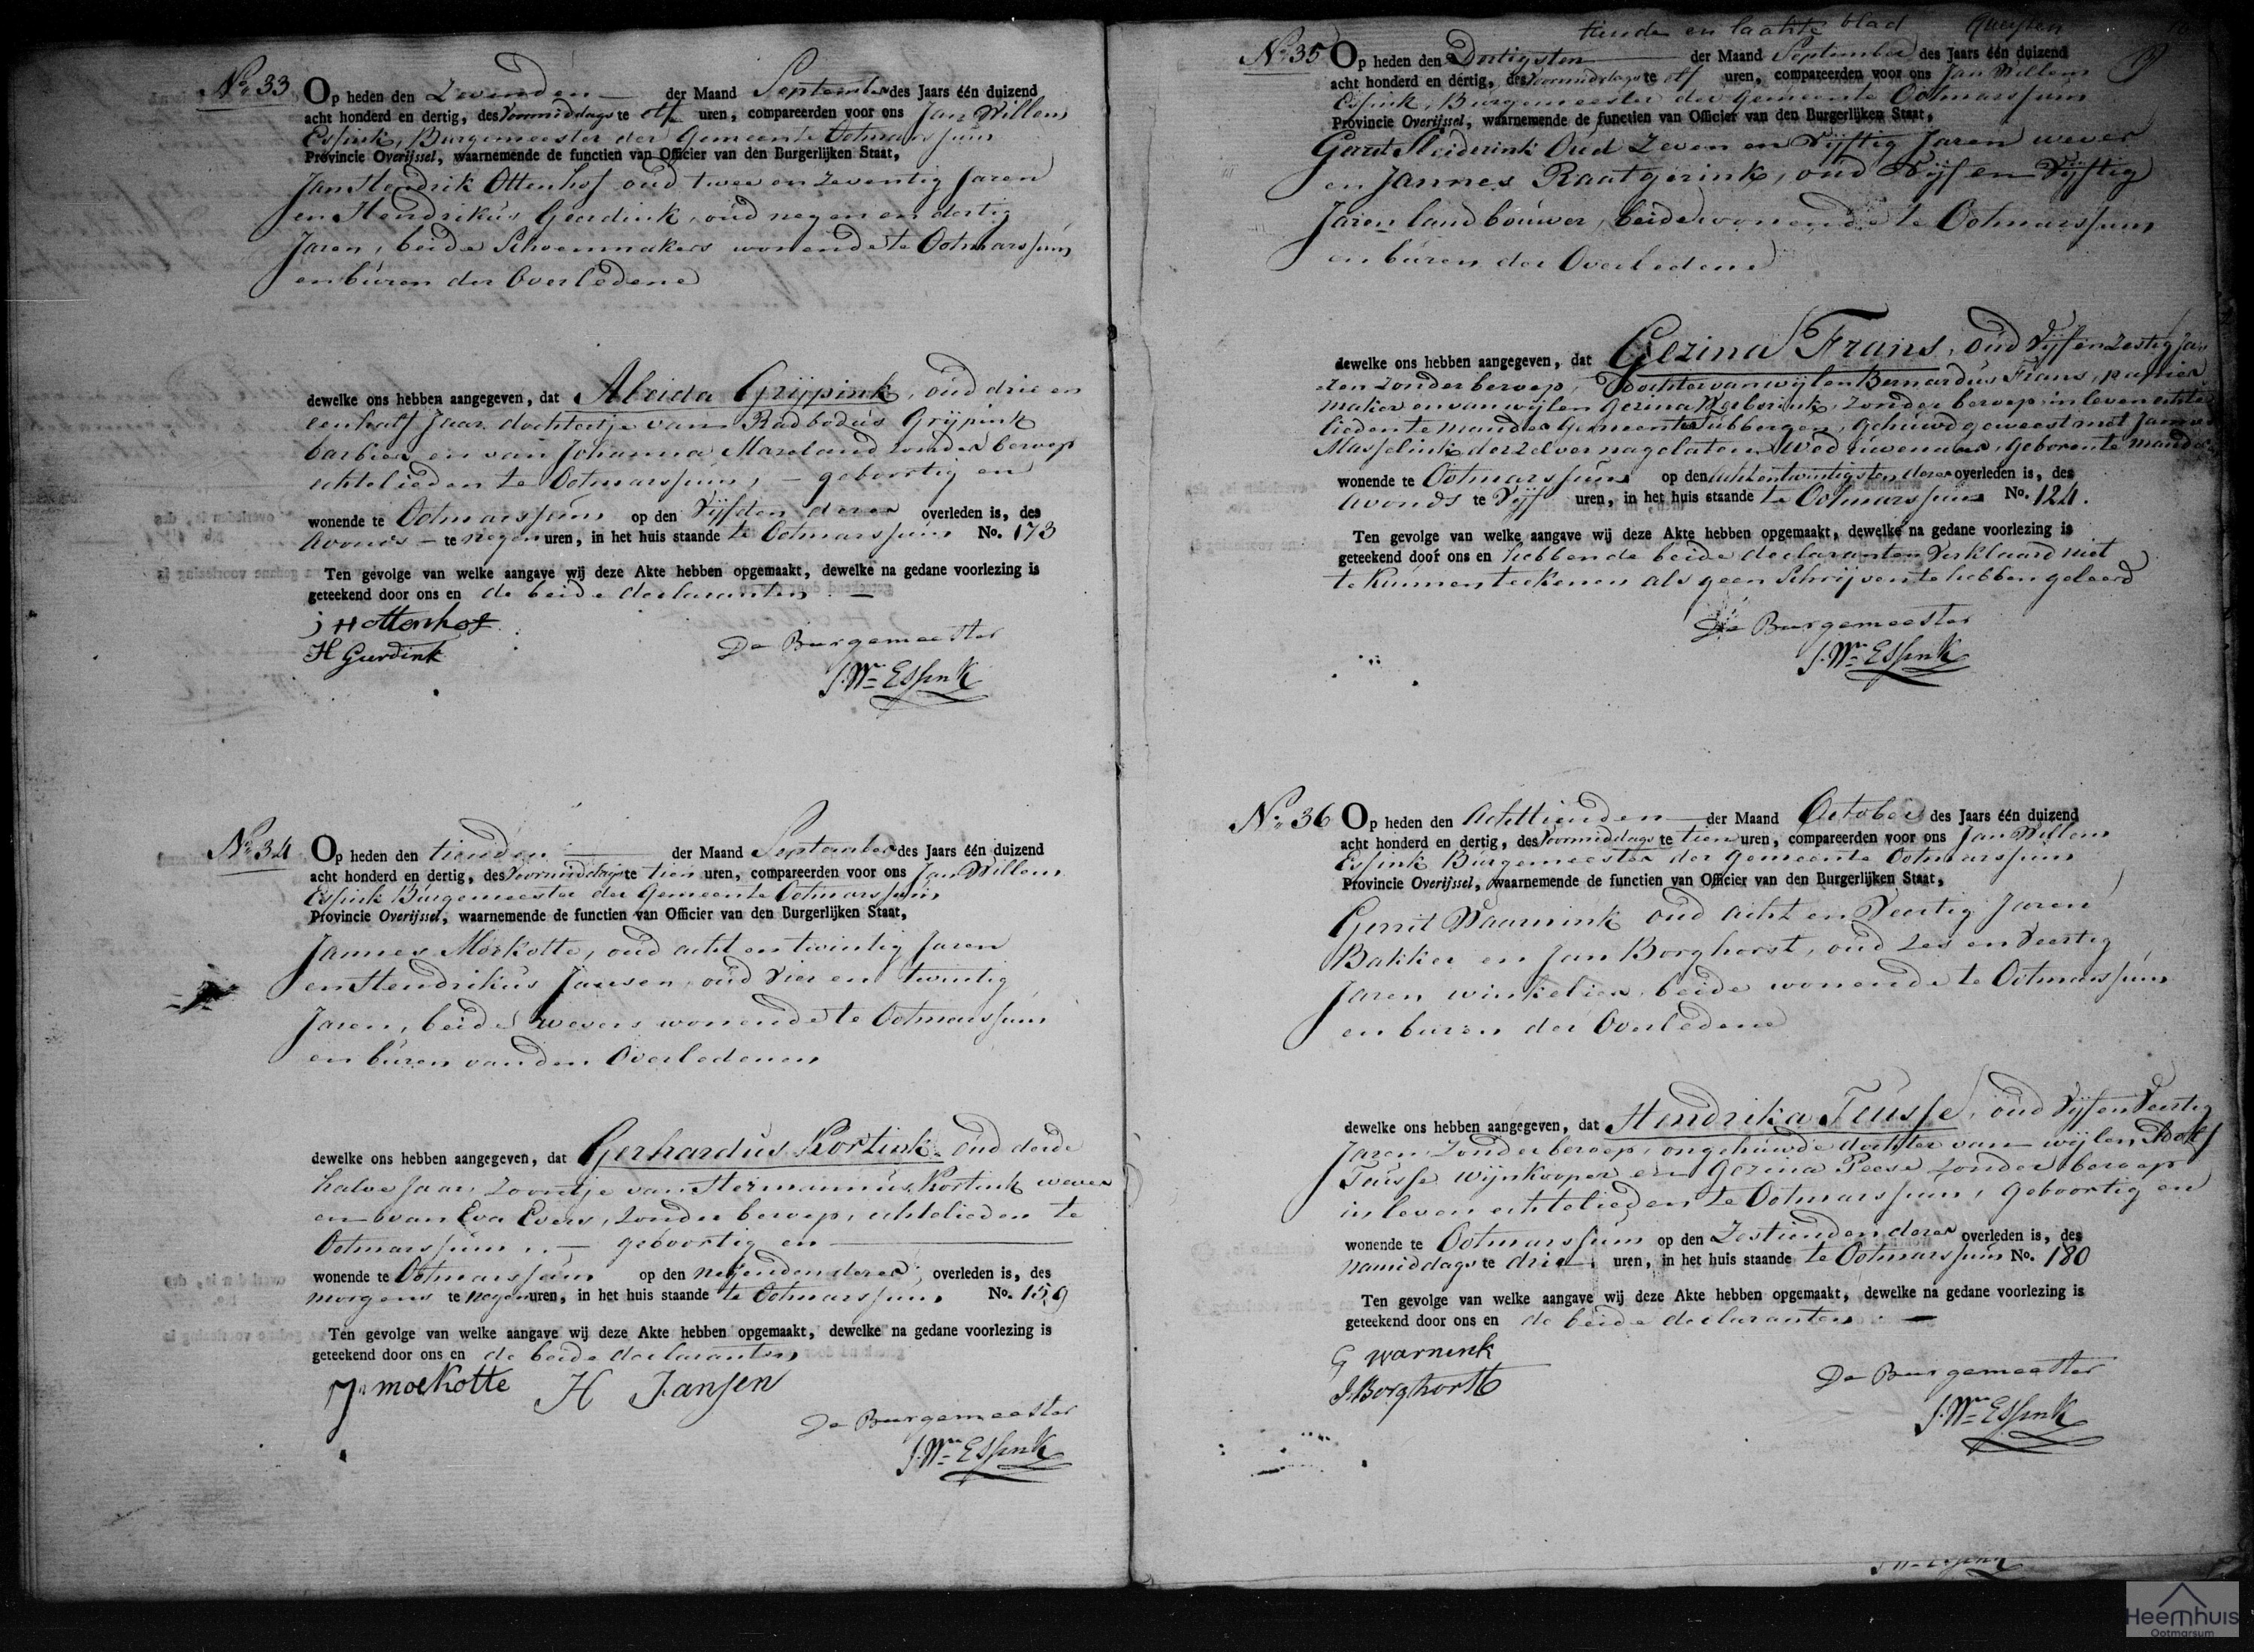 No. 33 Op heden den Zevenden der Maand September des Jaars één duizend
acht honderd en dertig, des Voormiddags te elf uren, compareerden voor ons Jan Willem
Essink, Burgemeester der Gemeente Ootmarssum
Provincie Overijssel, waarnemende de functien van Officier van den Burgerlijken Staat,
Jan Hendrik Ottenhof oud twee en zeventig Jaren
en Hendrikus Geerdink, oud negen en dertig
Jaren, beide Schoenmakers wonende te Ootmarssum
en buren der Overledene
dewelke ons hebben aangegeven, dat Aleida Grijpink, oud drie en
eenhalf Jaar dochtertje van Radbodus Grijpink
barbier en van Johanna Mareland zonder beroep
echtelieden te Ootmarssum, – geboortig en
wonende te Ootmarssum op den Vijfden dezer overleden is, des
Avonds – te negen uren, in het huis staande te Ootmarssum No. 173
Ten gevolge van welke aangave wij deze Akte hebben opgemaakt, dewelke na gedane voorlezing is
geteekend door ons en de beide declaranten. —
J H ottenhof
H Gerdink
De Burgemeester
J. Wm Essink
No. 34 Op heden den tienden der Maand September des Jaars één duizend
acht honderd en dertig, des Voormiddags te tien uren, compareerden voor ons Jan Willem
Essink Burgemeester der Gemeente Ootmarssum
Provincie Overijssel, waarnemende de functien van Officier van den Burgerlijken Staat,
Jannes Morkotte, oud acht en twintig Jaren
en Hendrikus Jansen, oud Vier en twintig
Jaren, beide wevers wonende te Ootmarssum
en buren van den Overledenen
dewelke ons hebben aangegeven, dat Gerhardus Kortink, oud derde
halve Jaar, Zoontje van Hermannus Kortink wever
en van Eva Evers, zonder beroep, echtelieden te
Ootmarssum. – geboortig en
wonende te Ootmarssum op den negenden dezer overleden is, des
morgens te negen uren, in het huis staande te Ootmarssum No. 159
Ten gevolge van welke aangave wij deze Akte hebben opgemaakt, dewelke na gedane voorlezing is
geteekend door ons en de beide declaranten
J. moekotte H Jansen
De Burgemeester
J. Wm Essink
tiende en laatste blad
No. 35 Op heden den Dertigsten der Maand September des Jaars één duizend
acht honderd en dertig, des Voormiddags te elf uren, compareerden voor ons Jan Willem
Essink, Burgemeester der Gemeente Ootmarssum
Provincie Overijssel, waarnemende de functien van Officier van den Burgerlijken Staat,
Gerrit Sleiderink Oud Zeven en Vijftig Jaren wever
en Jannes Raatgerink, oud Vijf en Vijftig
Jaren landbouwer, beide wonende te Ootmarssum
en buren der Overledene
dewelke ons hebben aangegeven, dat Gezina Frans, oud Vijf en Zestig Ja
ren zonder beroep, Dochter van wijlen Bernardus Frans, papier
maker en van wijlen Gezina zonder beroep in leven echte
lieden te Mander Gemeente Tubbergen, Gehuwd geweest met Jannes
Masselink derzelver nagelaten Weduwenaar, Geboren te Mander
wonende te Ootmarssum op den achtentwintigsten dezer overleden is, des
Avonds te Vijf uren, in het huis staande te Ootmarssum No. 124.
Ten gevolge van welke aangave wij deze Akte hebben opgemaakt, dewelke na gedane voorlezing is
geteekend door ons en hebbende beide declaranten Verklaard niet
te Kunnen teekenen als geen Schrijven te hebben geleerd
De Burgemeester
J. Wm Essink
No. 36 Op heden den Achttienden der Maand October des Jaars één duizend
acht honderd en dertig, des Voormiddags te tien uren, compareerden voor ons Jan Willem
Essink Burgemeester der Gemeente Ootmarssum
Provincie Overijssel, waarnemende de functien van Officier van den Burgerlijken Staat,
Gerrit Waarnink oud acht en Veertig Jaren
Bakker en Jan Borghorst, oud Zes en Veertig
Jaren winkelier, beide wonende te Ootmarssum
en buren der Overledene
dewelke ons hebben aangegeven, dat Hendrika Teusse, oud Vijf en Veertig
Jaren Zonder beroep, ongehuwde dochter van wijlen Adolf
Teusse wijnkooper en Gezina Peese zonder beroep
in leven echtelieden te Ootmarssum, Geboortig en
wonende te Ootmarssum op den Zestienden dezer overleden is, des
namiddags te drie uren, in het huis staande te Ootmarssum No. 180
Ten gevolge van welke aangave wij deze Akte hebben opgemaakt, dewelke na gedane voorlezing is
geteekend door ons en de beide declaranten. —
G warnink
J. Borghorst
De Burgemeester
J. Wm Essink
Heemhuis
Ootmarsum